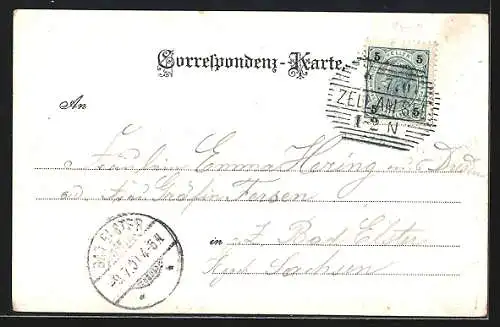 Correspondenz-Karte.
5 5
ZELL AM SEE
5 5
1-2 N
An
Fräulein Emma Hering
Gräfin Fersen
in Bad Elster
Sachsen
BAD ELSTER
-9.7.01. 4-5N